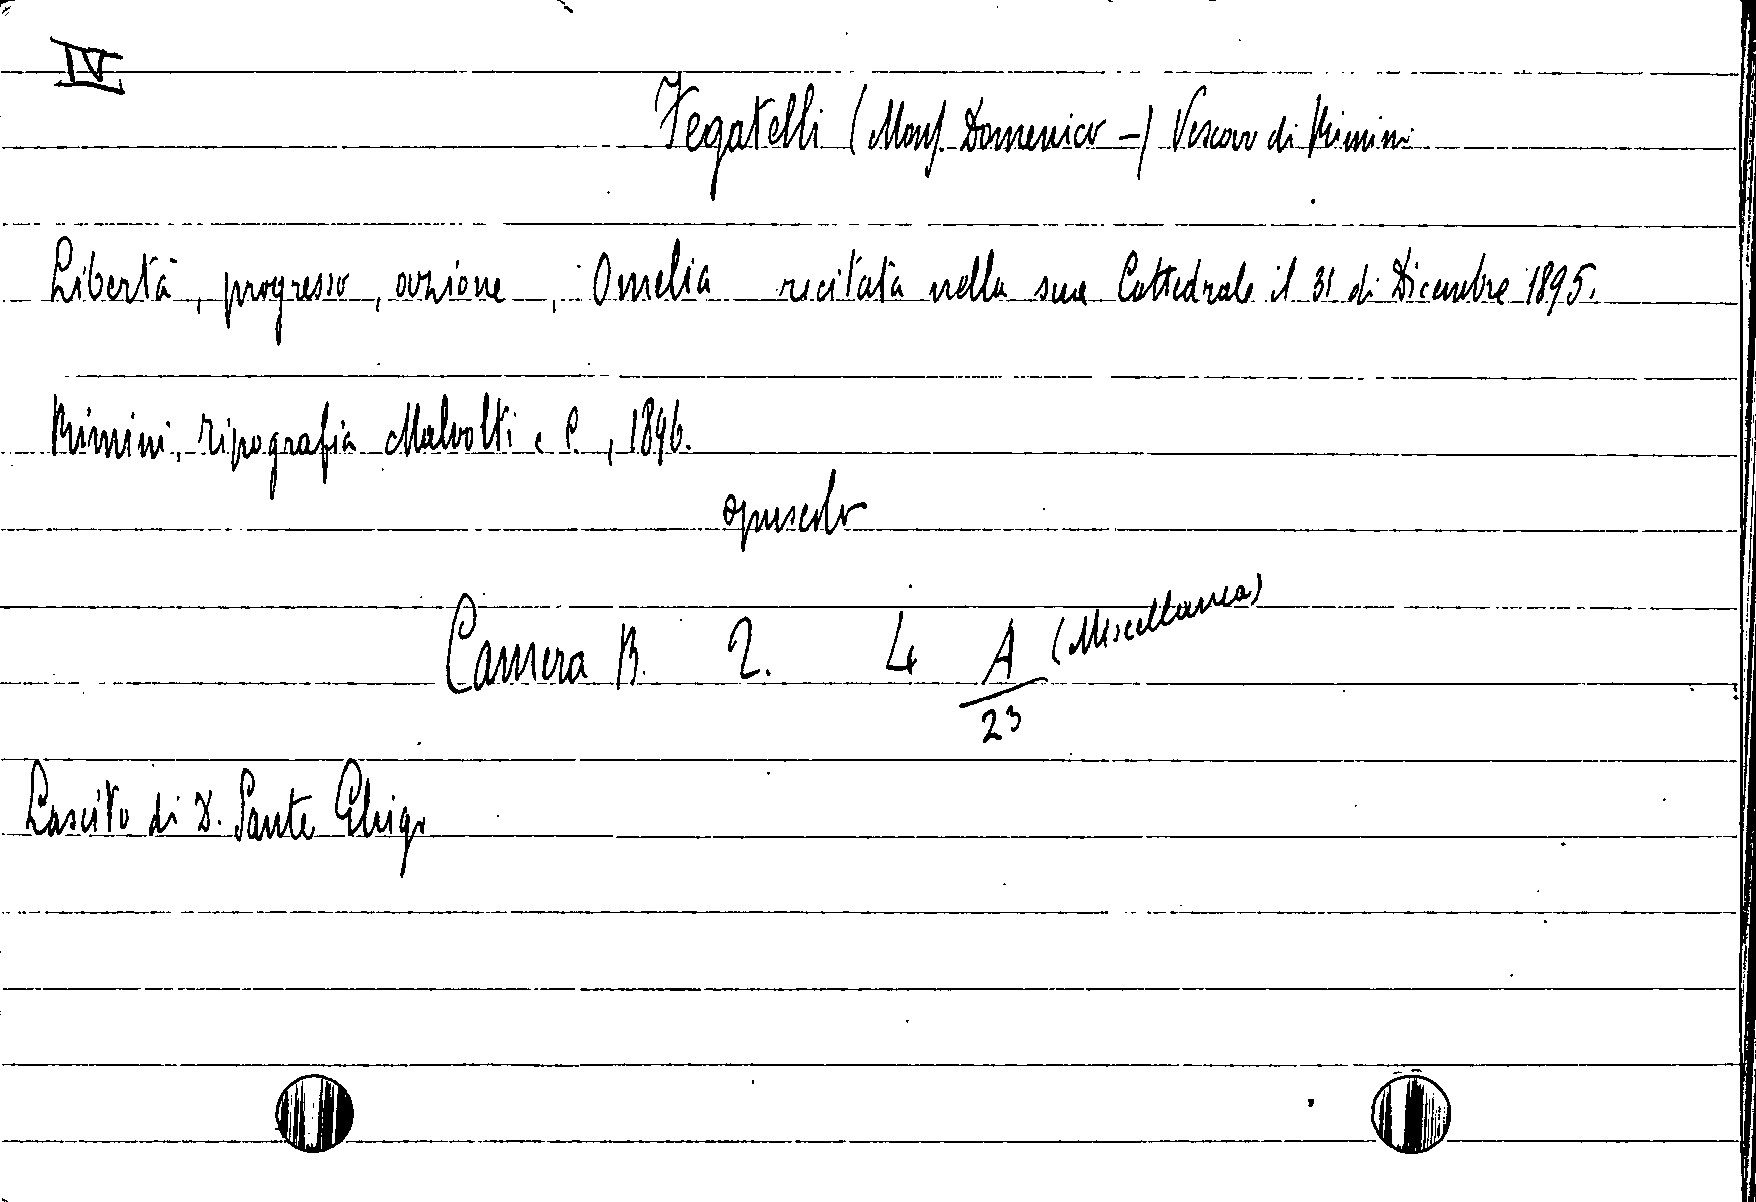 IV
Fegatelli (Mons. Domenico -) Vescovo di Rimini
Libertà, progresso, ozione, Omelia recitata nella sua Cattedrale il 31 di Dicembre 1895.
Rimini, Tipografia Malvolti e C., 1896.
opuscolo
Camera B. 2. 4 A (Miscellanea)
23
Lascito di D. Sante Ghigi